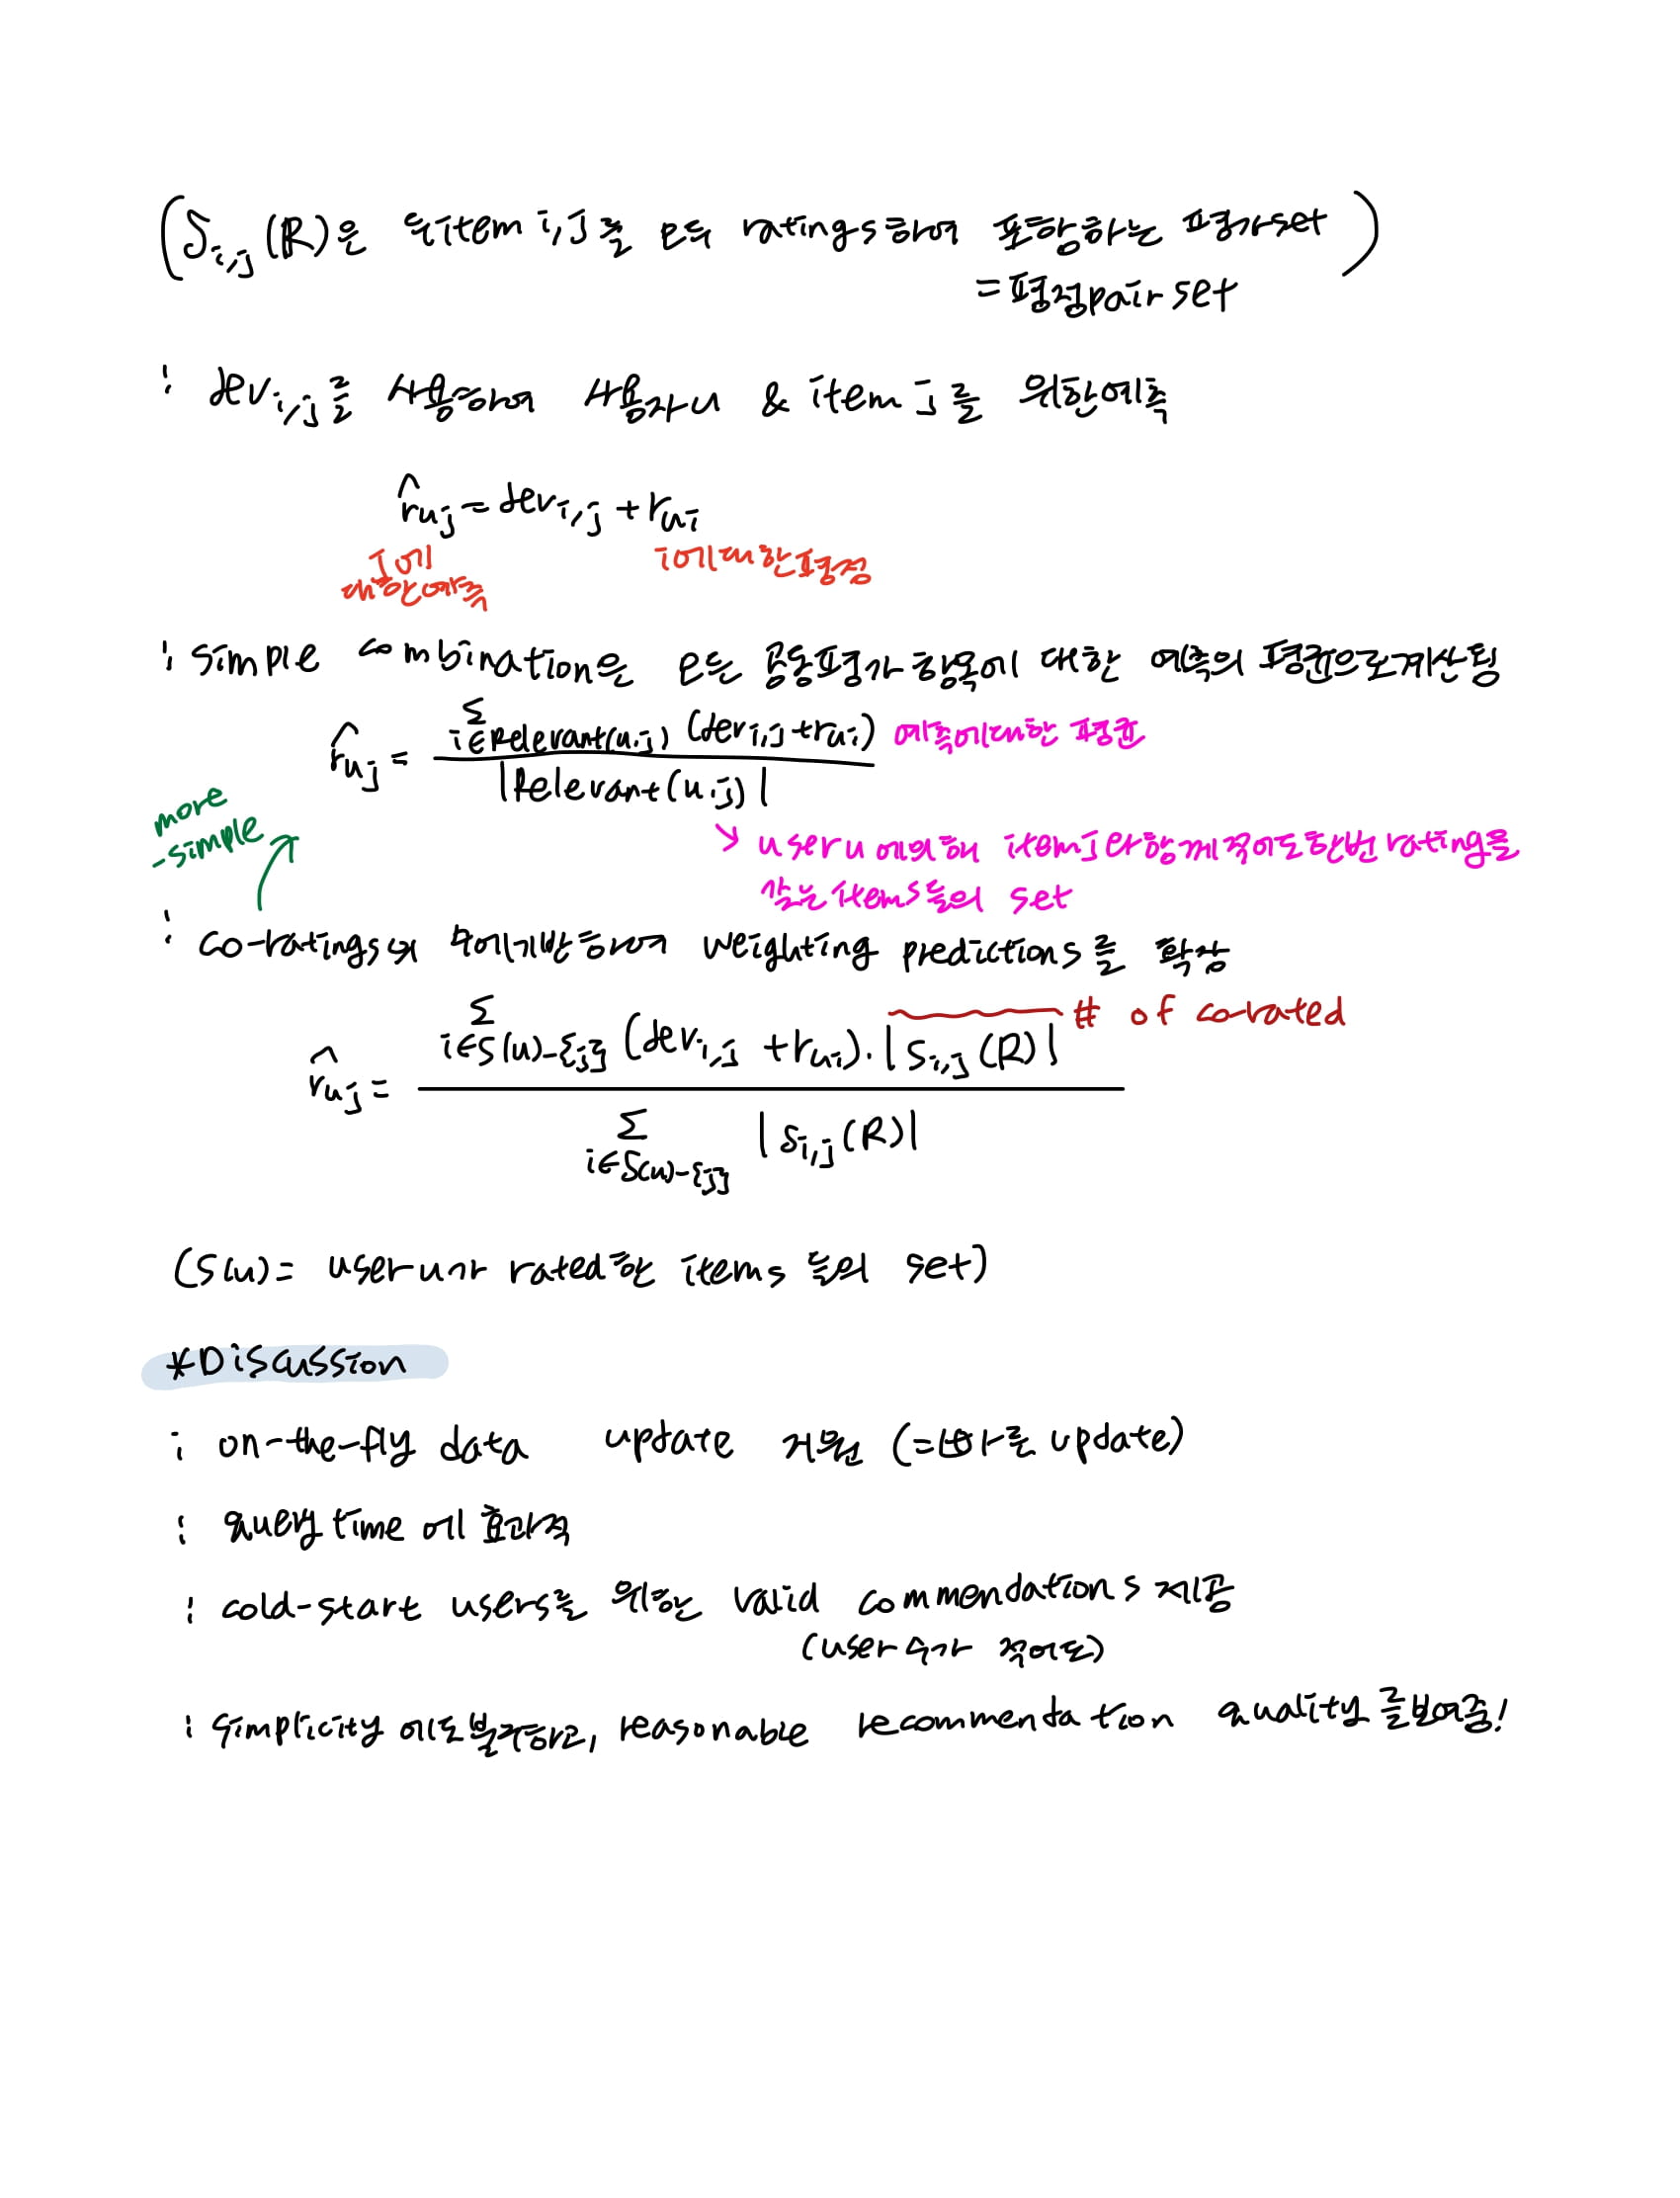 (S_{i,j}(R)은 두 item i,j를 모두 ratings하여 포함하는 평가set)
=평점pair set
: dev_{i,j}를 사용하여 사용자u & item j를 위한예측
r̂_{uj} = dev_{i,j} + r_{ui}
j에 대한예측
i에대한평점
: simple combination은 모든 공동평가 항목에 대한 예측의 평균으로계산됨
r̂_{uj} = Σ_{i∈Relevant(u,j)} (dev_{i,j}+r_{ui}) / |Relevant(u,j)|
예측에대한 평균
more
-simple
↘ user u에의해 item j와함께적어도한번rating를
갖는items들의 set
: co-ratings의 수에기반하여 weighting predictions를 확장
# of co-rated
r̂_{uj} = Σ_{i∈S(u)-{j}} (dev_{i,j} + r_{ui})·|S_{i,j}(R)| / Σ_{i∈S(u)-{j}} |S_{i,j}(R)|
(S(u)= user u가 rated한 items 들의 set)
*Discussion
: on-the-fly data update 지원 (=바로update)
: query time에 효과적
: cold-start users를 위한 valid commendations 제공
(user수가 적어도)
: simplicity에도불구하고, reasonable recommendation quality를보여줌!